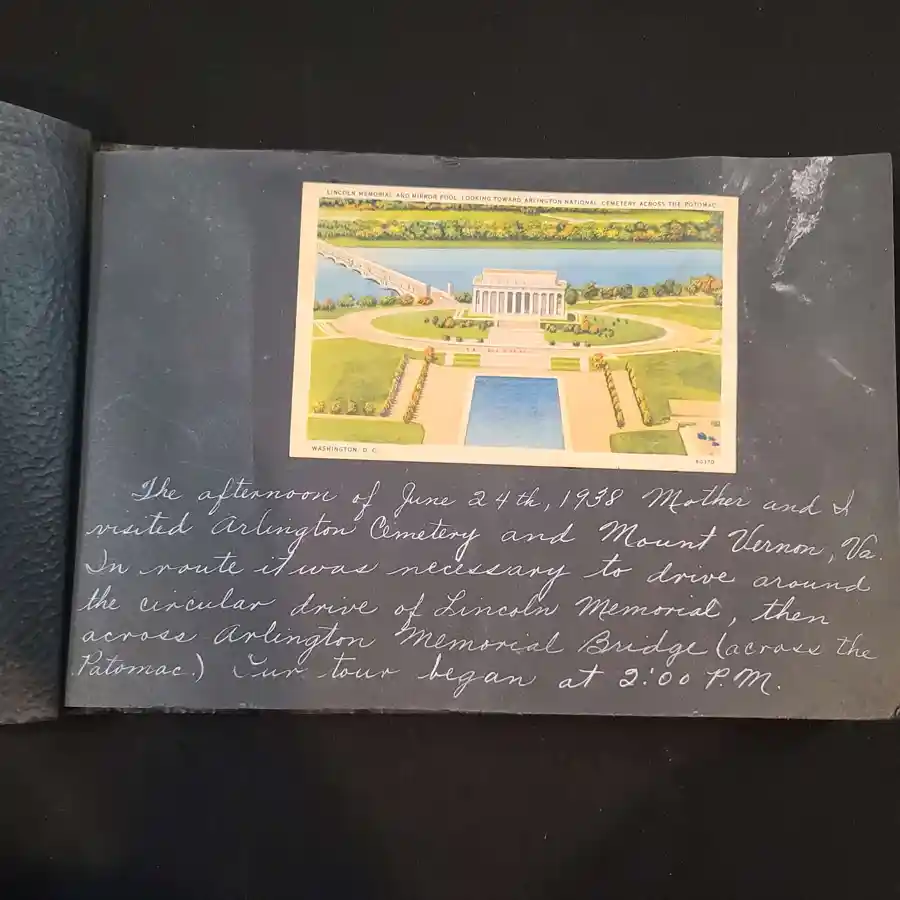 LINCOLN MEMORIAL AND MIRROR POOL, LOOKING TOWARD ARLINGTON NATIONAL CEMETERY ACROSS THE POTOMAC
WASHINGTON, D. C.
The afternoon of June 24th, 1938 Mother and I
visited Arlington Cemetery and Mount Vernon, Va.
In route it was necessary to drive around
the circular drive of Lincoln Memorial, then
across Arlington Memorial Bridge (across the
Patomac.) Our tour began at 2:00 P.M.